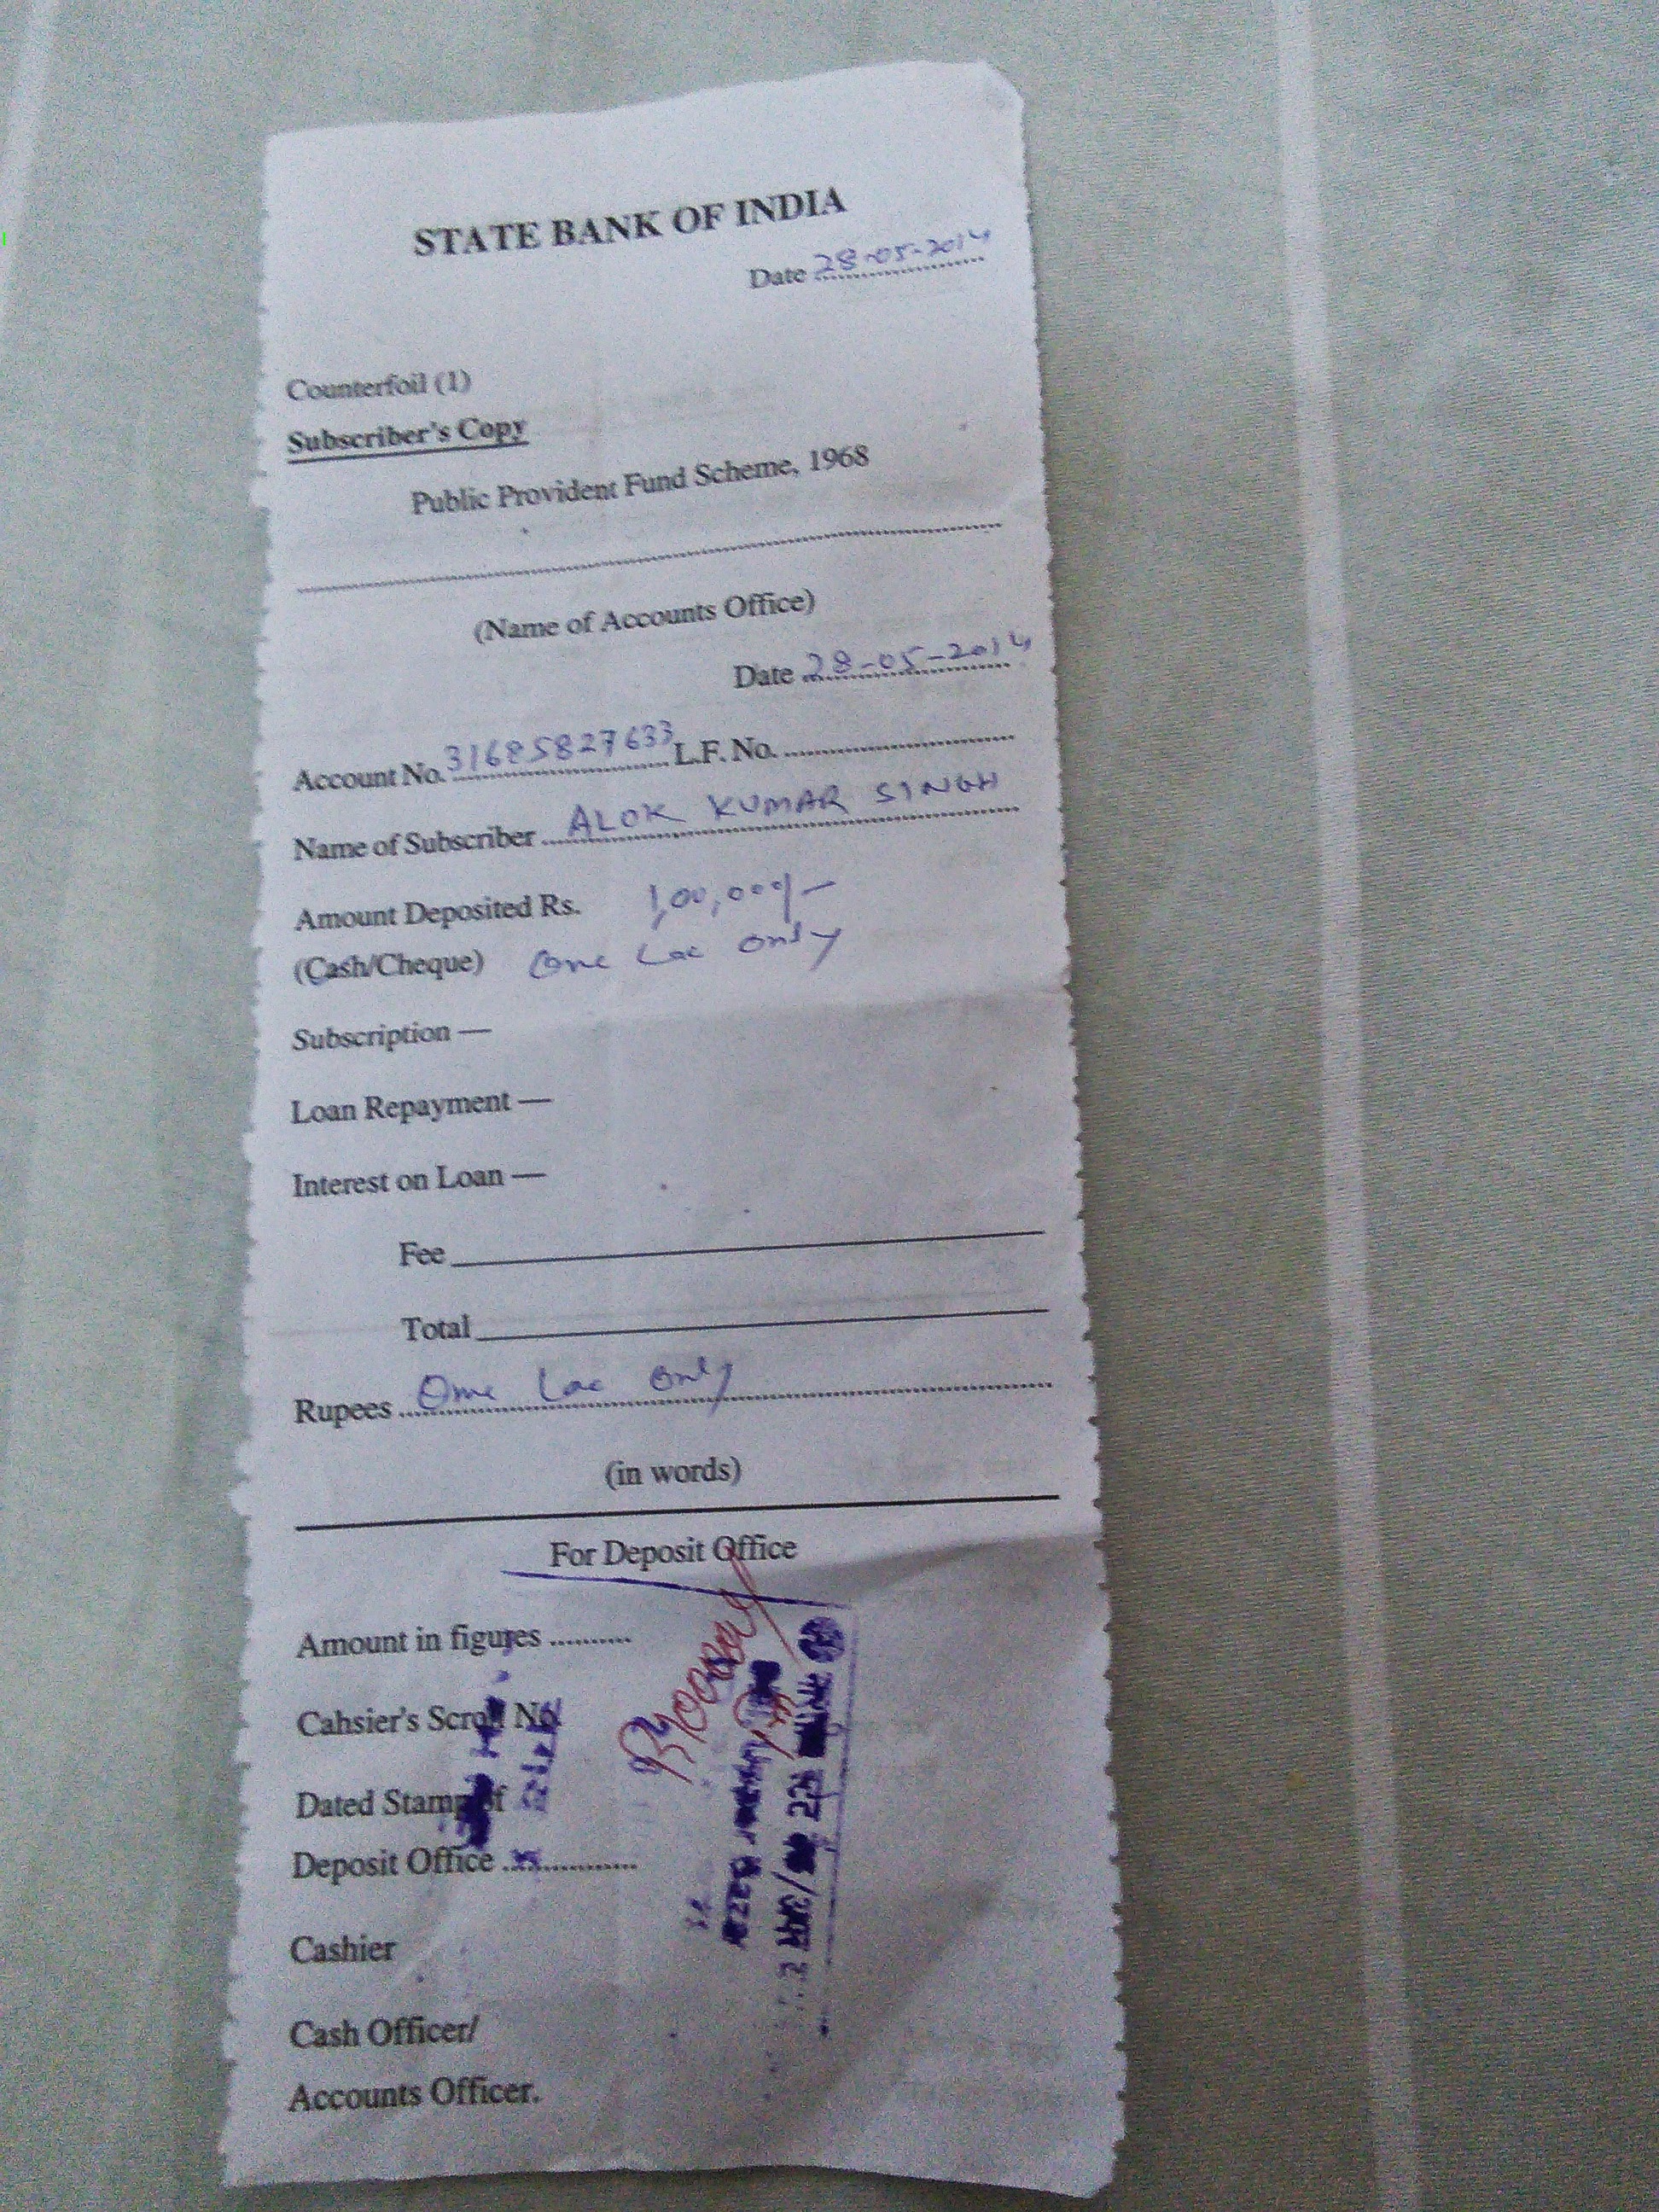 STATE BANK OF INDIA
Date 28-05-2014
Counterfoil (1)
Subscriber's Copy
Public Provident Fund Scheme, 1968
(Name of Accounts Office)
Date 28-05-2014
Account No. 31685827633 L.F. No.
Name of Subscriber ALOK KUMAR SINGH
Amount Deposited Rs. 1,00,000/-
(Cash/Cheque) One Lac only
Subscription —
Loan Repayment —
Interest on Loan —
Fee
Total
Rupees One Lac only
(in words)
For Deposit Office
Amount in figures ..........
Cahsier's Scroll No.
Dated Stamp of
Deposit Office
Cashier
Cash Officer/
Accounts Officer.